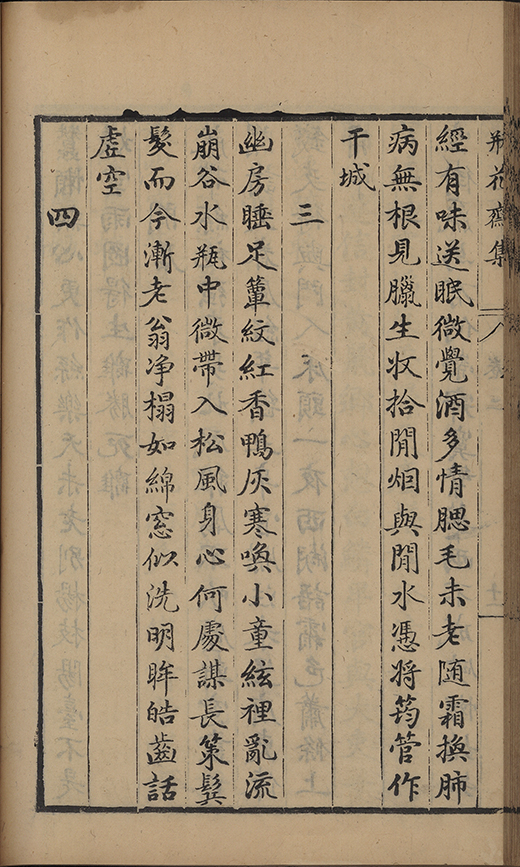 瓶花齋集
經有味送眠微覺酒多情腮毛未老随霜換肺
病無根見臘生收拾閒烟與閒水憑將筠管作
干城
三
幽房睡足簟紋紅香鴨灰寒喚小童絃裡亂流
崩谷水瓶中微帶入松風身心何處謀長策鬂
髮而今漸老翁净榻如綿窓似洗明眸皓齒話
虛空
四